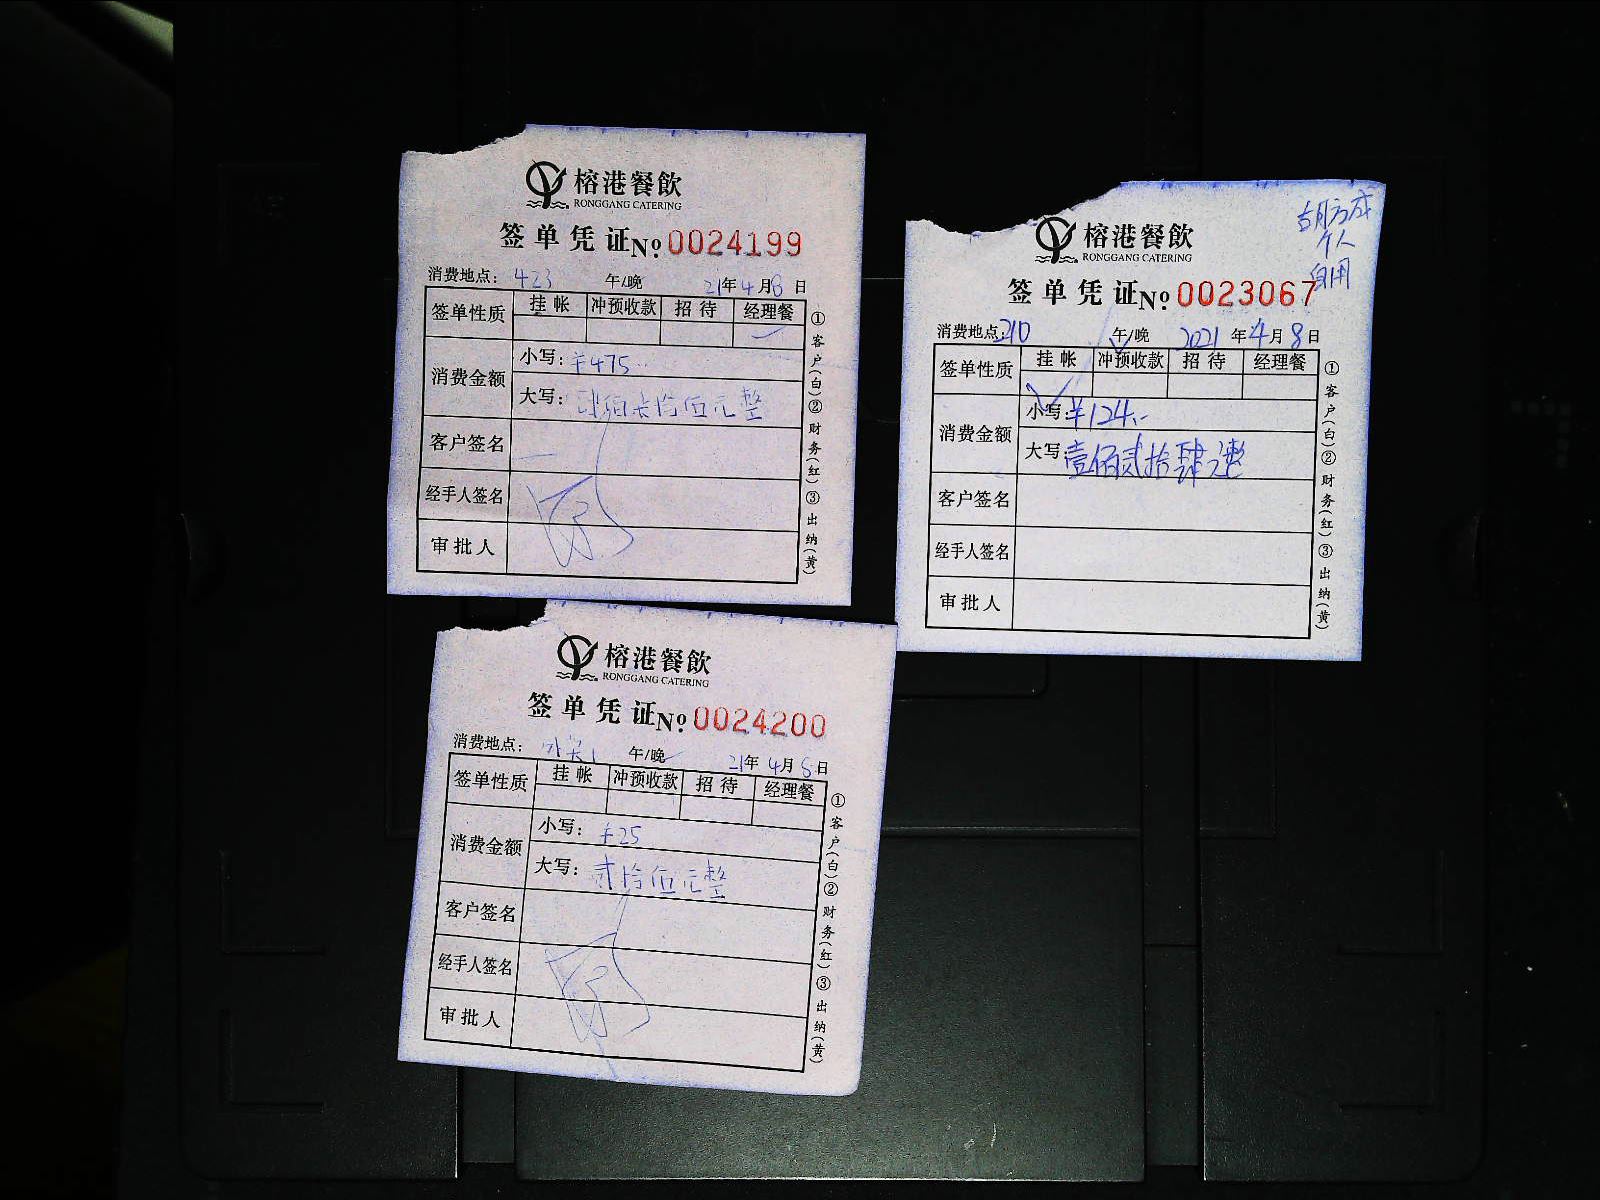 榕港餐飲
RONGGANG CATERING
签单凭证№ 0024199
消费地点: 423 午/晚 21年4月8日
签单性质 挂帐 冲预收款 招待 经理餐
消费金额
小写: ¥475
大写: 拾伍元整
客户签名
经手人签名
审批人
①客户(白)②财务(红)③出纳(黄)
榕港餐飲
RONGGANG CATERING
胡方成
个人
自用
签单凭证№ 0023067
消费地点: 210 午/晚 2021年4月8日
签单性质 挂帐 冲预收款 招待 经理餐
消费金额
小写: ¥124.-
大写: 壹佰贰拾肆元整
客户签名
经手人签名
审批人
①客户(白)②财务(红)③出纳(黄)
榕港餐飲
RONGGANG CATERING
签单凭证№ 0024200
消费地点: 外卖1 午/晚 21年4月8日
签单性质 挂帐 冲预收款 招待 经理餐
消费金额
小写: ¥25
大写: 贰拾伍元整
客户签名
经手人签名
审批人
①客户(白)②财务(红)③出纳(黄)